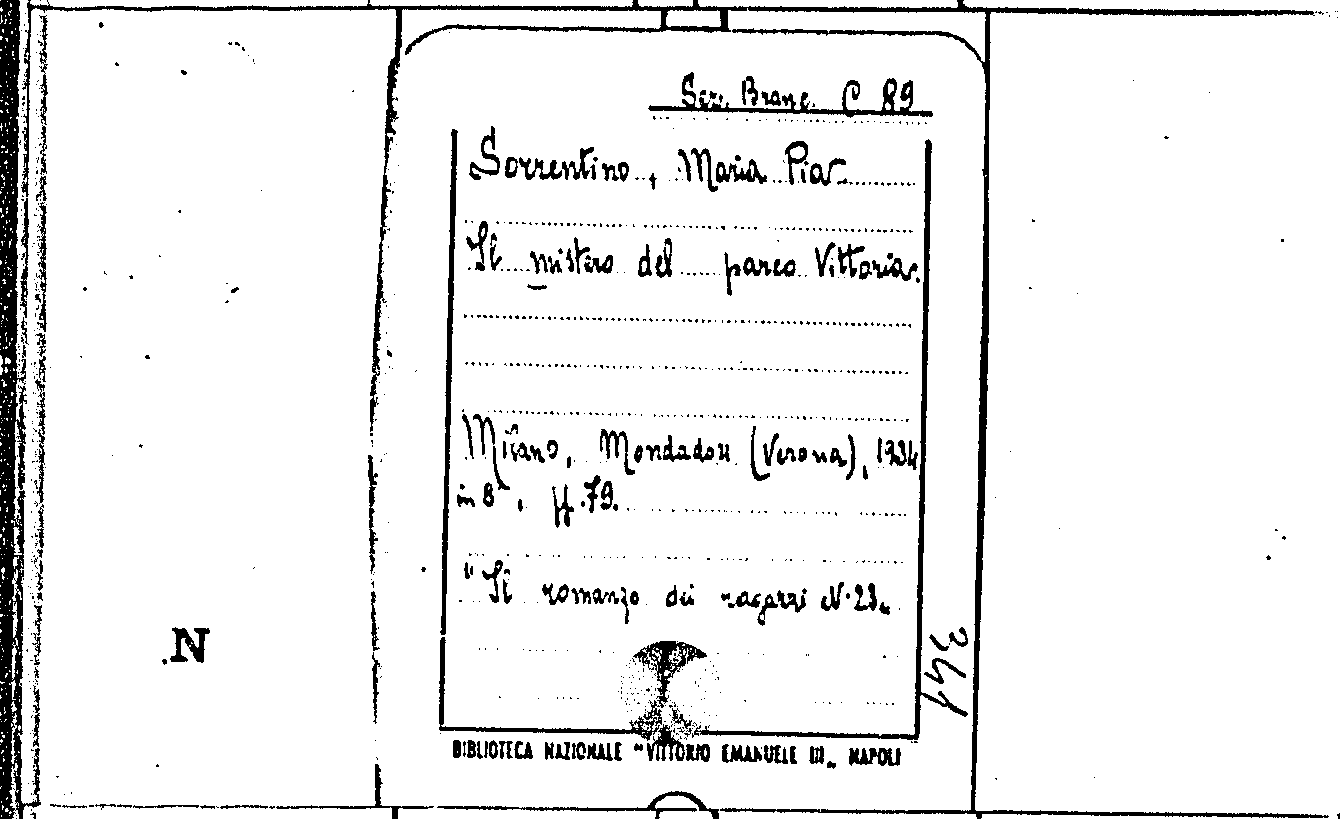 Sez. Branc. C 89
Sorrentino, Maria Pia
Il mistero del parco Vittoria.
Milano, Mondadori (Verona), 1934
in 8°, pp. 79.
"Il romanzo dei ragazzi N. 23„
N
344
BIBLIOTECA NAZIONALE "VITTORIO EMANUELE III„ NAPOLI